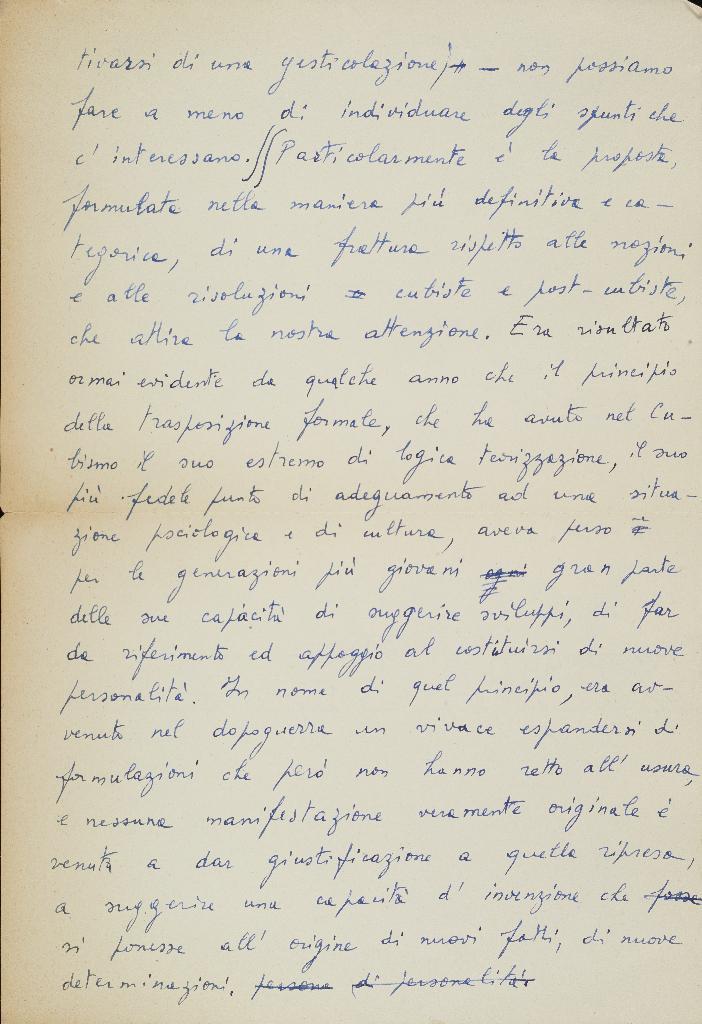 tivarsi di una gesticolazione, — non possiamo
fare a meno di individuare degli spunti che
c'interessano. // Particolarmente è la proposta,
formulata nella maniera più definitiva e ca-
tegorica, di una frattura rispetto alle nozioni
e alle risoluzioni cubiste e post-cubiste,
che attira la nostra attenzione. Era risultato
ormai evidente da qualche anno che il principio
della trasposizione formale, che ha avuto nel Cu-
bismo il suo estremo di logica teorizzazione, il suo
più fedele punto di adeguamento ad una situa-
zione psciologica e di cultura, aveva perso
per le generazioni più giovani ogni gran parte
delle sue capacità di suggerire sviluppi, di far
da riferimento ed appoggio al costituirsi di nuove
personalità. In nome di quel principio, era av-
venuto nel dopoguerra un vivace espandersi di
formulazioni che però non hanno retto all'usura,
e nessuna manifestazione veramente originale è
venuta a dar giustificazione a quella ripresa,
a suggerire una capacità d'invenzione che fosse
si ponesse all'origine di nuovi fatti, di nuove
determinazioni. persona di personalità.